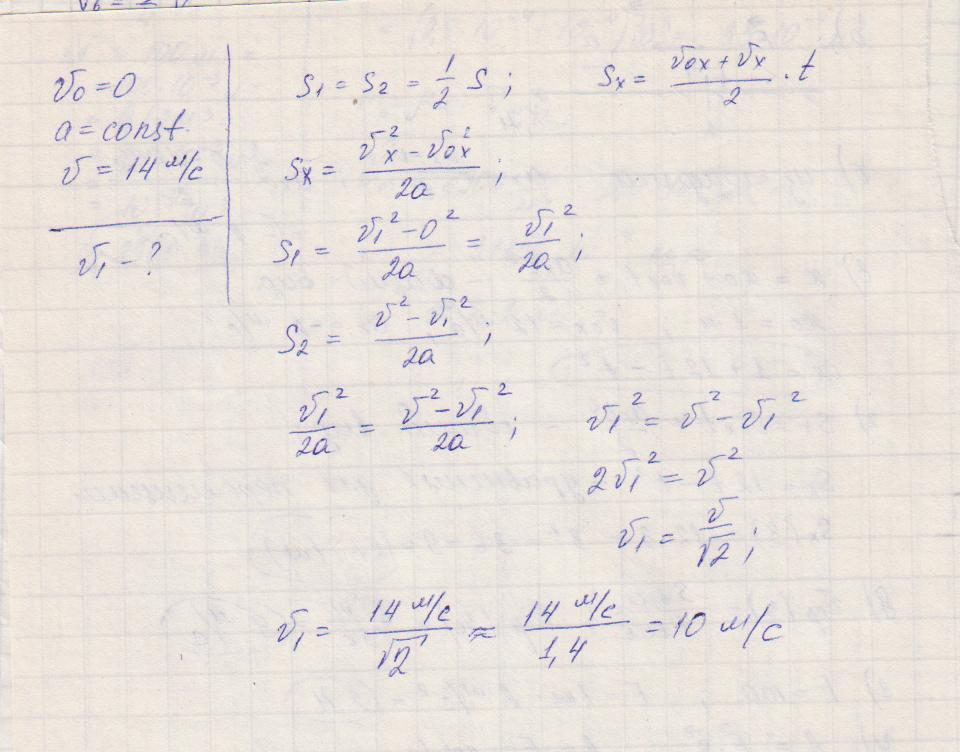 v₀ = 0
a = const
v = 14 м/с
v₁ - ?
S₁ = S₂ = 1/2 S; Sₓ = (v₀ₓ + vₓ)/2 · t
Sₓ = (vₓ² - v₀ₓ²)/2a;
S₁ = (v₁² - 0²)/2a = v₁²/2a;
S₂ = (v² - v₁²)/2a;
v₁²/2a = (v² - v₁²)/2a; v₁² = v² - v₁²
2v₁² = v²
v₁ = v/√2;
v₁ = 14 м/с/√2 ≈ 14 м/с/1,4 = 10 м/с